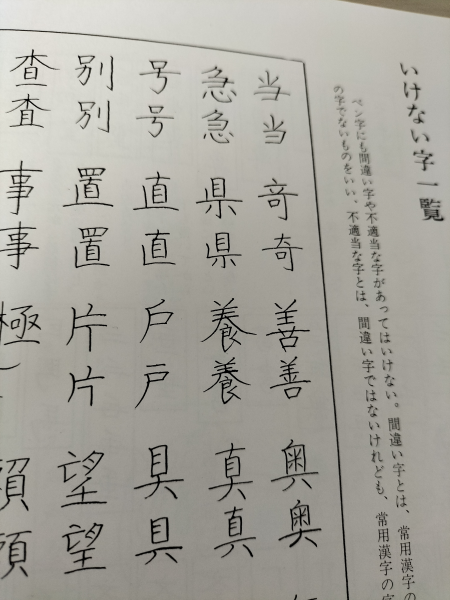 いけない字一覧
ペン字にも間違い字や不適当な字があってはいけない。間違い字とは、常用漢字の
の字でないものをいい、不適当な字とは、間違い字ではないけれども、常用漢字の字
当当 奇奇 善善 奥奥
急急 県県 養養 真真
号号 直直 戸戸 具具
別別 置置 片片 望望
査査 事事 極 頭